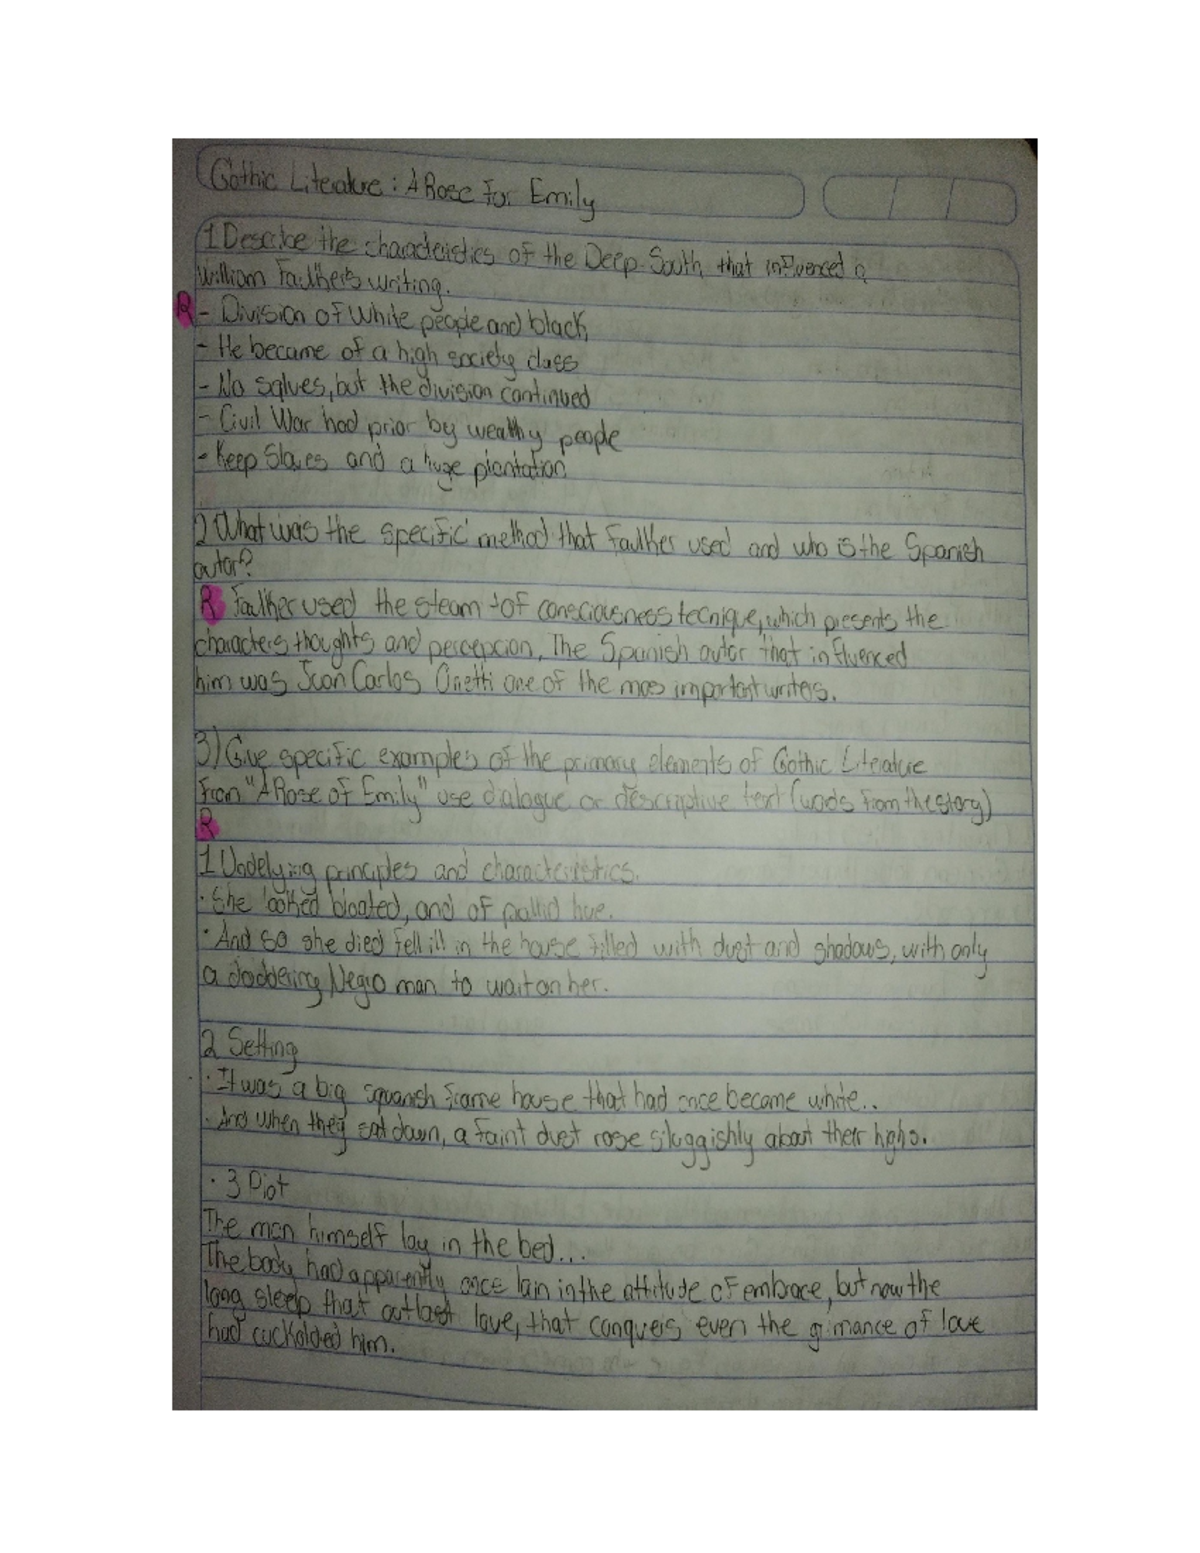 Gothic Literature: A Rose For Emily
1 Describe the characteristics of the Deep South that influenced
William Faulkner's writing.
R - Division of White people and black
- He became of a high society class
- No salves, but the division continued
- Civil War had prior by wealthy people
- Keep Slaves and a huge plantation
2 What was the specific method that Faulkner used and who is the Spanish
autor?
R Faulkner used the steam of consciousness tecnique, which presents the
characters thoughts and percepcion. The Spanish autor that influenced
him was Juan Carlos Onetti one of the mos important writers.
3) Give specific examples of the primary elements of Gothic Literature
From "A Rose of Emily" use dialogue or descriptive text (words from the story)
R
1 Underlying principles and characteristics.
· She looked bloated, and of pallid hue.
· And so she died Fell ill in the house filled with dust and shadows, with only
a doddering Negro man to wait on her.
2 Setting
· It was a big squarish frame house that had once became white..
· And when they sat down, a faint dust rose sluggishly about their highs.
· 3 Plot
The man himself lay in the bed...
The body had apparently once lain in the attitude of embrace, but now the
long sleep that outlast love, that conquers even the grimance of love
had cuckolded him.